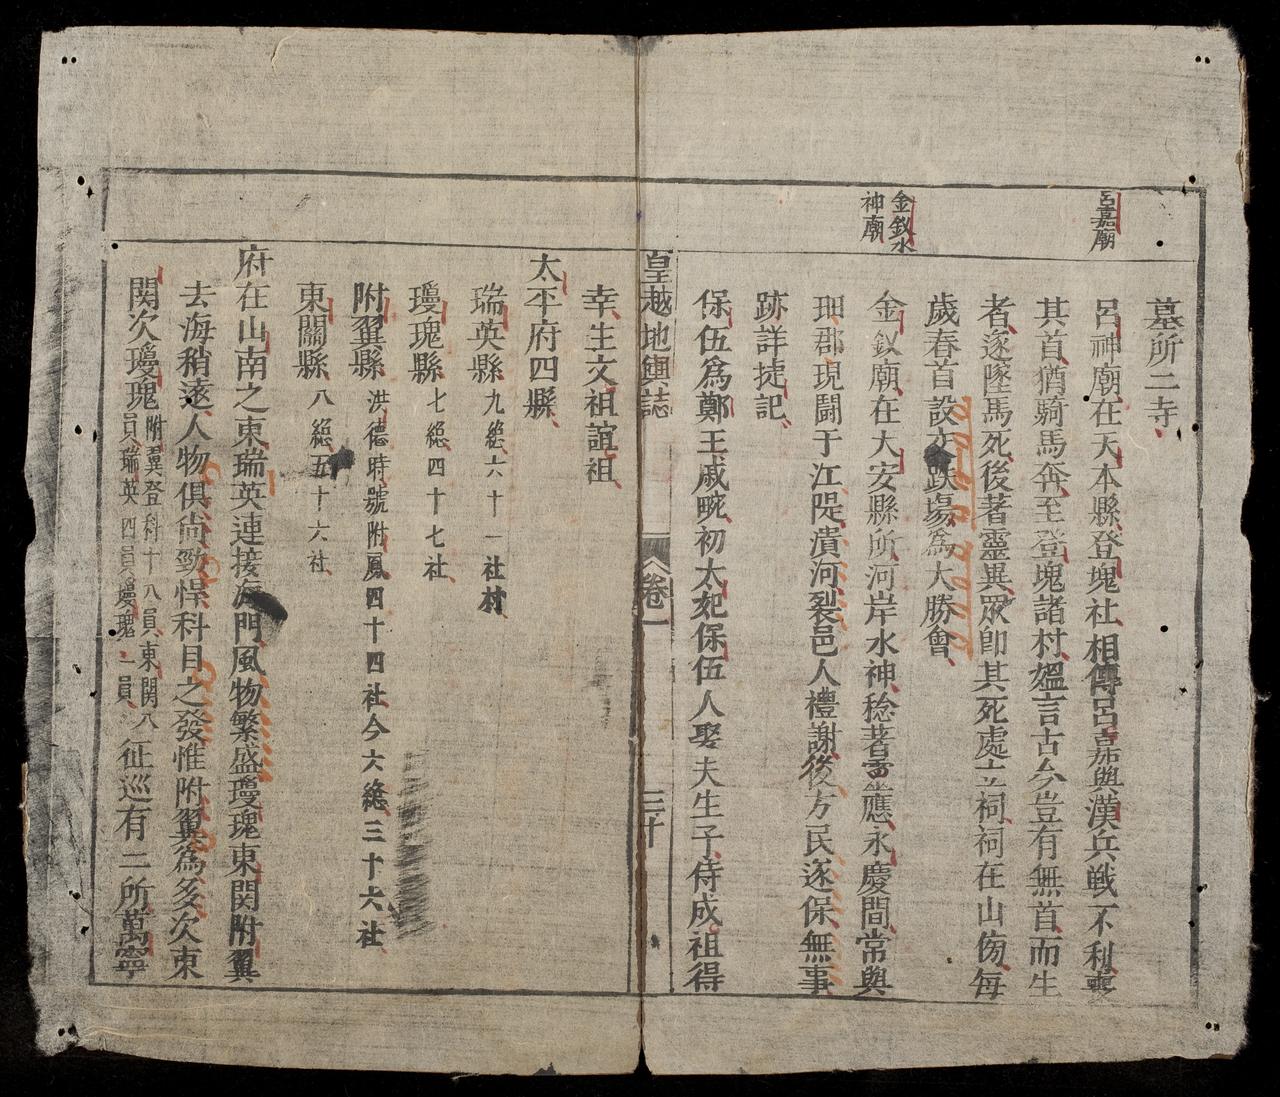 呂嘉廟
金釵水
神廟
墓所二寺
呂神廟在天本縣登塊社相傳呂嘉與漢兵戰不利喪
其首猶騎馬奔至登塊諸村媼言古今豈有無首而生
者遂墜馬死後著靈異眾卽其死處立祠祠在山傍每
歲春首設 跌場爲大勝會
金釵廟在大安縣所河岸水神稔著霊應永慶間常與
珊郡現鬪于江隄潰河裂邑人禮謝後方民遂保無事
跡詳捷記
保伍爲鄭王戚畹初太妃保伍人娶夫生子侍成祖得
皇越地輿誌 卷一 三十
幸生文祖誼祖
太平府四縣
瑞英縣九總六十一社村
瓊瑰縣七總四十七社
附翼縣洪德時號附鳳四十四社今六總三十六社
東關縣八總五十六社
府在山南之東瑞英連接海門風物繁盛瓊瑰東関附翼
去海稍遠人物俱尙勁悍科目之發惟附翼爲多次東
関次瓊瑰附翼登科十八員東関八員瑞英四員瓊瑰一員征巡有二所萬寧